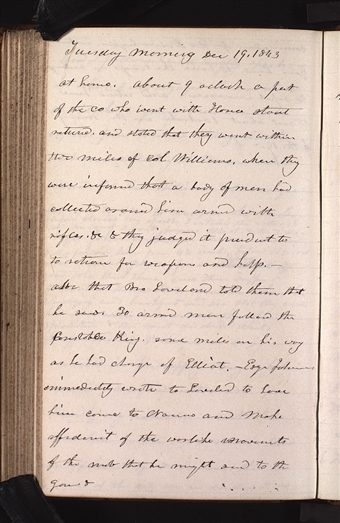 Tuesday Morning Dec 19, 1843
at home. about 9 oclock a part
of the co who went with Hosea stout
returd. and stated that they went within
two miles of Col Williams, when they
were informd that a body of men had
collected around him armed with
rifles. &c & they judged it prudent to
to return for weapons and help.—
also that Bro Loveland told them that
he saw 30 armed men follow the
Constable King. some miles on his way
as he had charge of Elliot, — Esqr Johnson
immediately wrote to to have
him come to Nauvoo and Make
affidavit of the warlike movements
of the mob that he might send to the
Gov